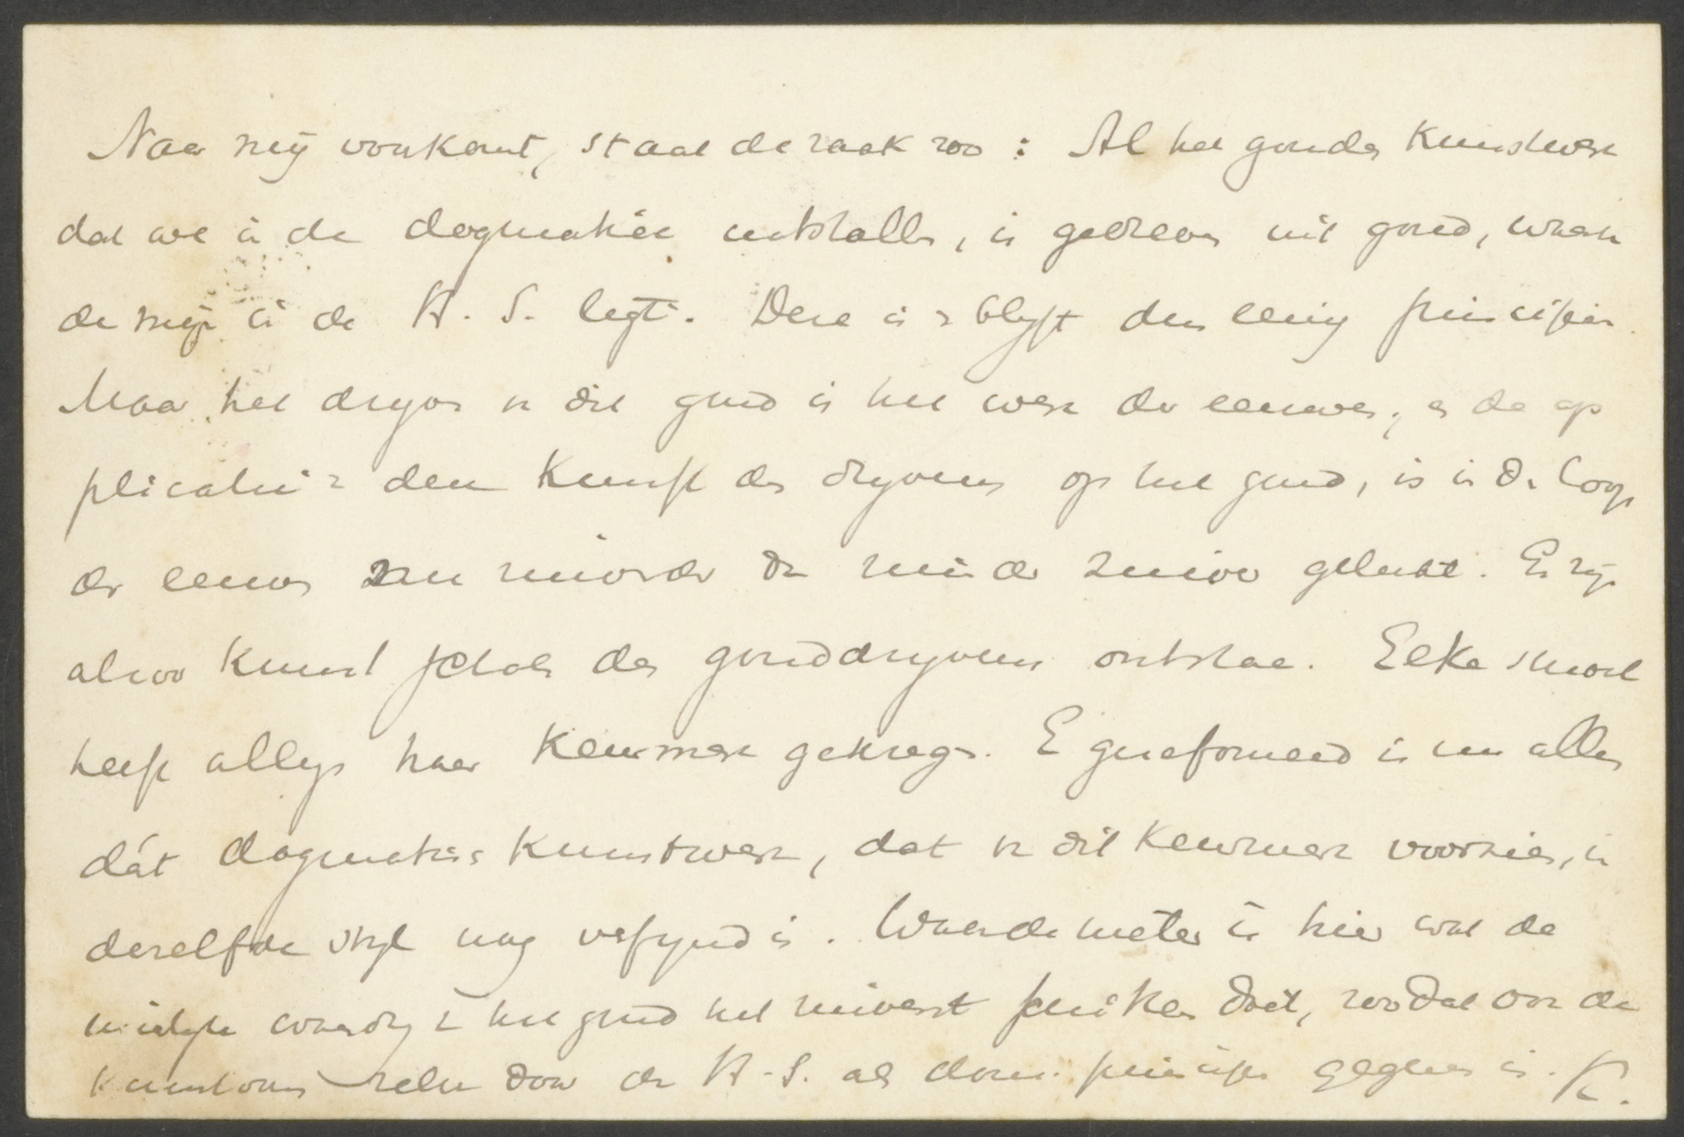 Naar mij voorkomt, staat de zaak zoo: Al het gouden Kunstwerk
dat we in de dogmatiek uitstallen, is gedreven uit goud, waarv.
de mijn in de H. S. ligt. Deze is & blijft den eenig principium.
Maar het drijven v. dit goud is het werk der eeuwen, en de ap
plicatie v. den Kunst des drijvens op het goud, is in den loop
der eeuwen min of meer zuiver gelukt. Er zijn
alzoo Kunst scholen des gouddrijvens ontstaan. Elke school
heeft allengs haar Keurmerk gekregen. Gereformeerd is nu alleen
dát dogmatische Kunstwerk, dat v. dit Keurmerk voorzien, in
denzelfden stijl nog verfijnd is. Waardemeter is hier wat de
innerlijke waardij v. het goud het zuiverst schitteren doet, zoodat ook de
Kunstvorm zelve door de H. S. als den principium gegeven is. K.